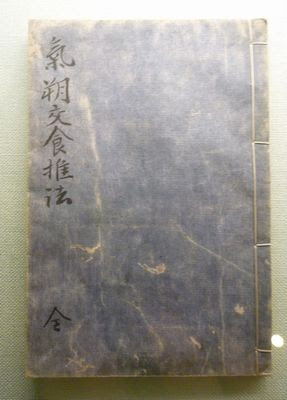 氣朔交食推法
全